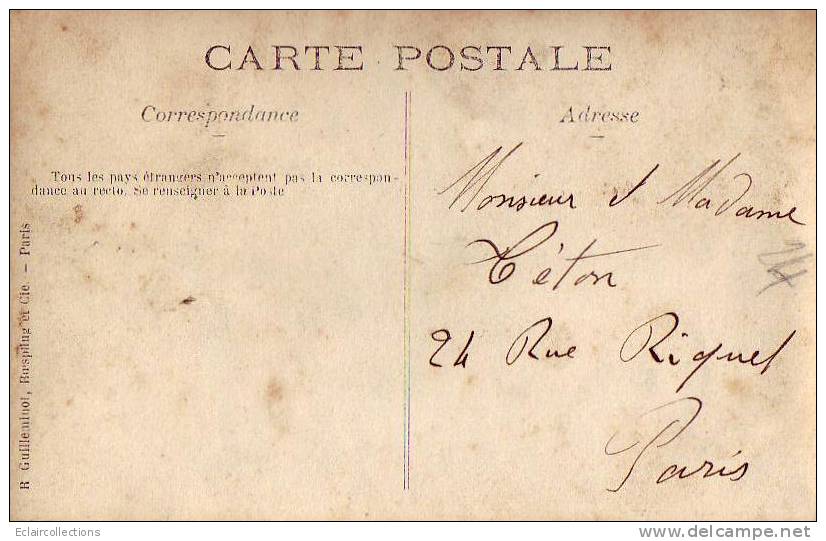 CARTE POSTALE
Correspondance
Adresse
Tous les pays étrangers n'acceptent pas la correspon-
dance au recto. Se renseigner à la Poste
R. Guilleminot, Bœspflug et Cie. — Paris
Monsieur & Madame
Céton
24 Rue Riquet
Paris
Eclaircollections
www.delcampe.net